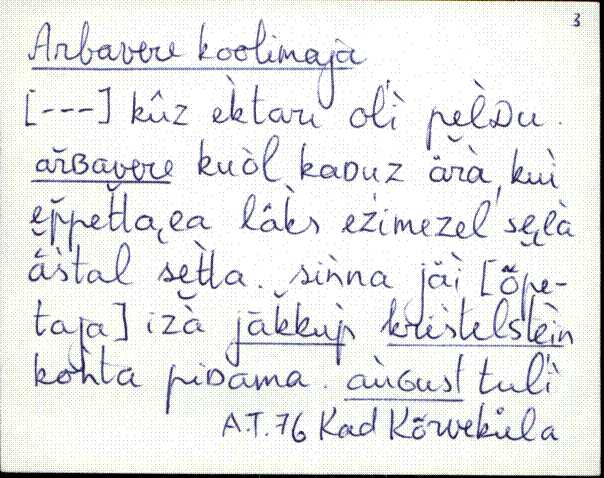 3
Arbavere koolimaja
[---] kûz èktari ol'i pèlᴅu.
ařʙavere kuòl, kaᴅuz ärà, kui
eppetta,ea lâks ezimezel selà
ästal setta. sinna jäi [õpe-
taja] izà jäkkup kristelstèin
kohta piᴅama. aùgust tul'i
A.T. 76 Kad Kõrveküla